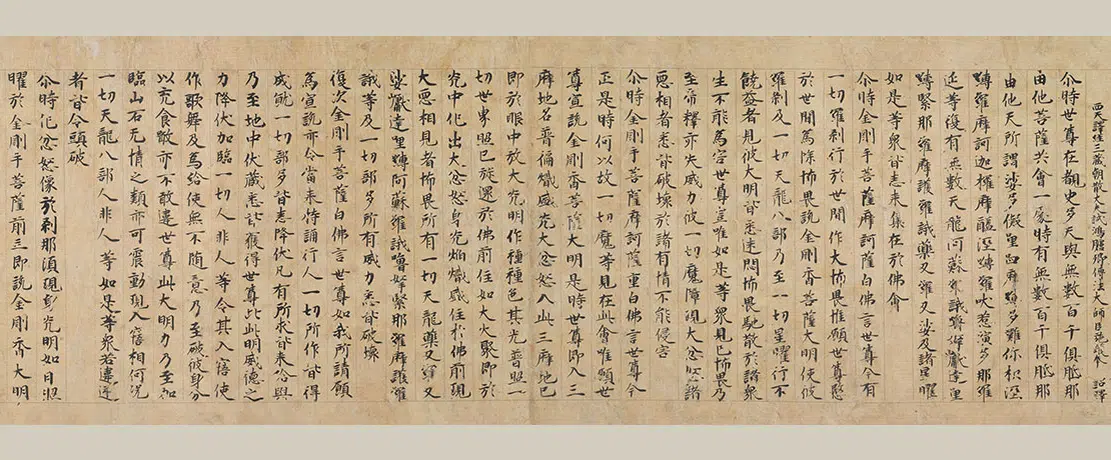 西天譯經三藏朝散大夫試鴻臚卿傳法大師臣施護奉 詔譯
尒時世尊在覩史多天與無數百千俱胝那
由他菩薩共會一處時有無數百千俱胝那
由他天所謂娑多儗里呬摩嚩多難你枳濕
嚩羅摩訶迦櫂摩醯濕嚩羅吠惹演多那羅
延等復有無數天龍阿蘇羅誐嚕拏巘達里
嚩緊那羅摩護羅誐藥叉羅叉娑及諸星曜
如是等衆皆悉來集在於佛會
尒時金剛手菩薩摩訶薩白佛言世尊今有
一切羅剎行於世間作大怖畏惟願世尊愍
於世間為除怖畏說金剛香菩薩大明使彼
羅剎及一切天龍八部乃至一切星曜行不
饒益者見彼大明皆悉迷悶怖畏馳散於諸衆
生不能為害世尊豈唯如是等衆見已怖畏乃
至帝釋亦失威力彼一切魔障現大忿怒諸
惡相者悉皆破壞於諸有情不能侵害
尒時金剛手菩薩摩訶薩重白佛言世尊今
正是時何以故一切魔等見在此會唯願世
尊宣說金剛香菩薩大明是時世尊即入三
摩地名普徧熾盛光大忿怒入此三摩地已
即於眼中放大光明作種種色其光普照一
切世界照已旋還於佛前住如大火聚即於
光中化出大忿怒身光焰熾盛住於佛前現
大惡相見者怖畏所有一切天龍藥叉羅叉
娑巘達里嚩阿蘇羅誐嚕拏緊那羅摩護羅
誐等及一切部多所有威力悉皆破壞
復次金剛手菩薩白佛言世尊如我所請願
為宣說亦令當來持誦行人一切所作皆得
成就一切部多皆悉降伏凡有所求皆來給與
乃至地中伏藏悉皆獲得世尊此明威德之
力降伏加臨一切人非人等令其入寤使
作歌舞及為給使無不隨意乃至破彼身分
以充食散亦不敢違世尊此大明力乃至加
臨山石无情之類亦可震動現入寤相何況
一切天龍八部人非人等如是等衆若違逆
者皆令頭破
尒時化忿怒像於剎那須現身光明如日照
曜於金剛手菩薩前三即說金剛香大明